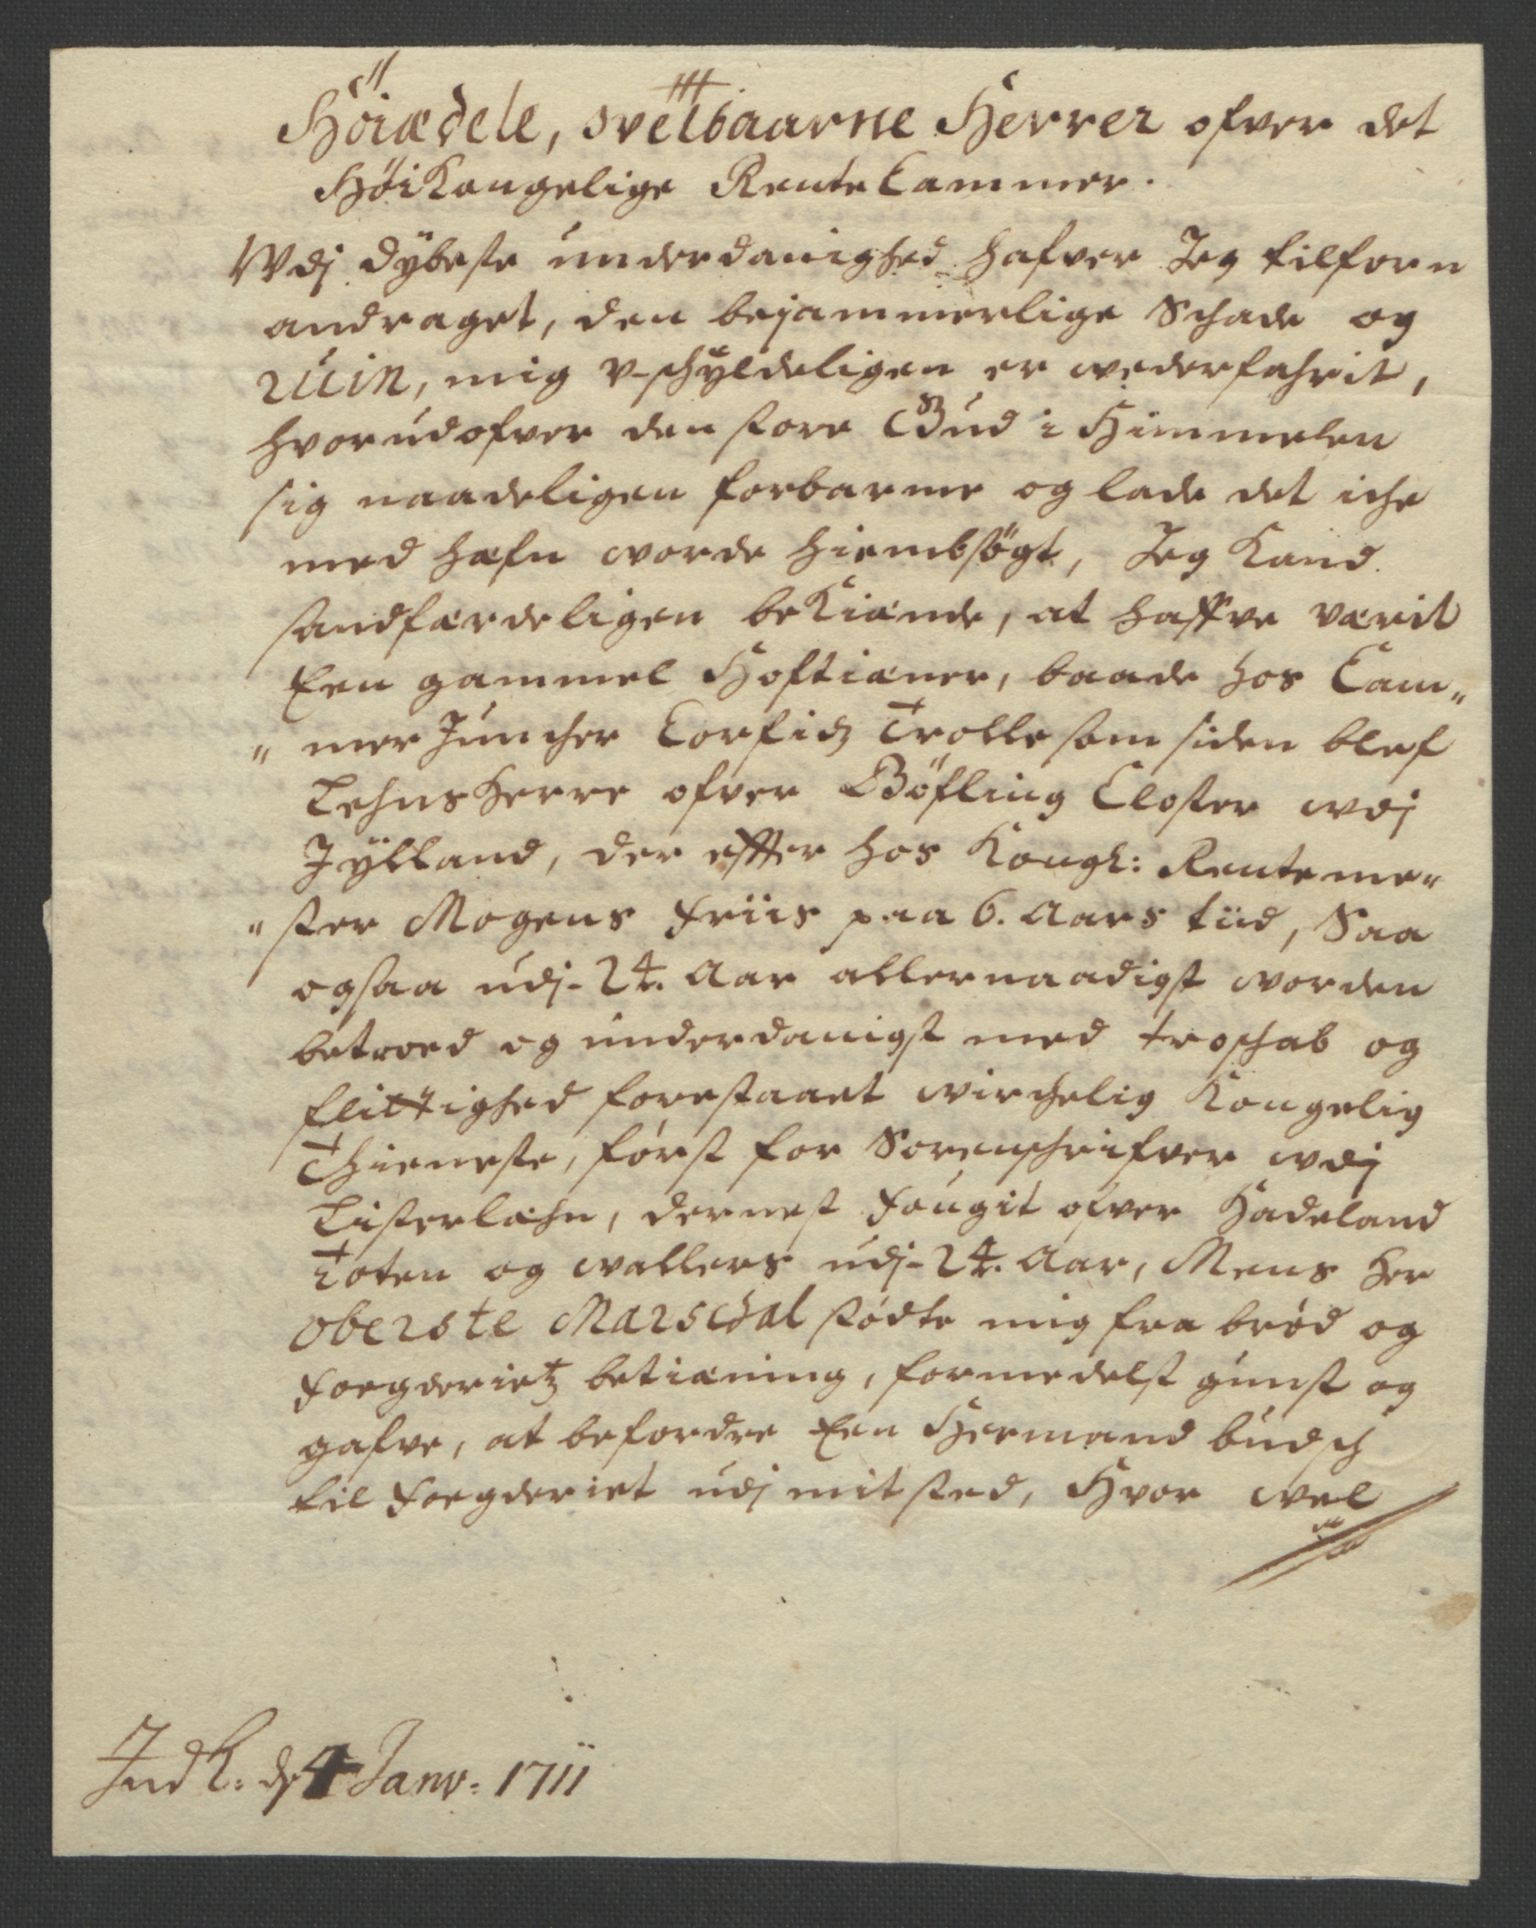 Høiædele, velbaarne Herrer ofver det
HøiKongelige RenteCammer.
Wdj dÿbeste underdanighed hafver Jeg tilforn
andraget, den bejammerlige Schade og
ruin, mig v-schÿldeligen er wederfahrit,
hvorudofver den store Gud i Himmelen
sig naadeligen forbarme og lade det iche
med hæfn worde hiembsøgt, Jeg Kand
sandfærdeligen beKiende, at haffve værit
Een gammel Hoftiener, baade hos Cam„
„mer Juncher Corfidz Trolle som siden blef
Lehns Herre ofver Bøfling Closter wdj
Jÿlland, der effter hos Kongl: Renteme„
„ster Mogens Friis paa 6. Aars tiid, Saa
ogsaa udj 24. Aar allernaadigst worden
betroed og underdanigst med troschab og
flittighed forestaaet wirchelig Kongelig
Thieneste, først for Sorenschrifver wdj
Listerlæhn, dernest Fougit ofver Hadeland
Toten og wallers udj 24. Aar, Mens Her
Oberste Marschal stødte mig fra brød og
Foegderietz betiening, formedelst gunst og
gafve, at befordre Een Hermand budsch
til Foegderiet udj mit sted, Hvor wel
Indk: d 4 Janv: 1711